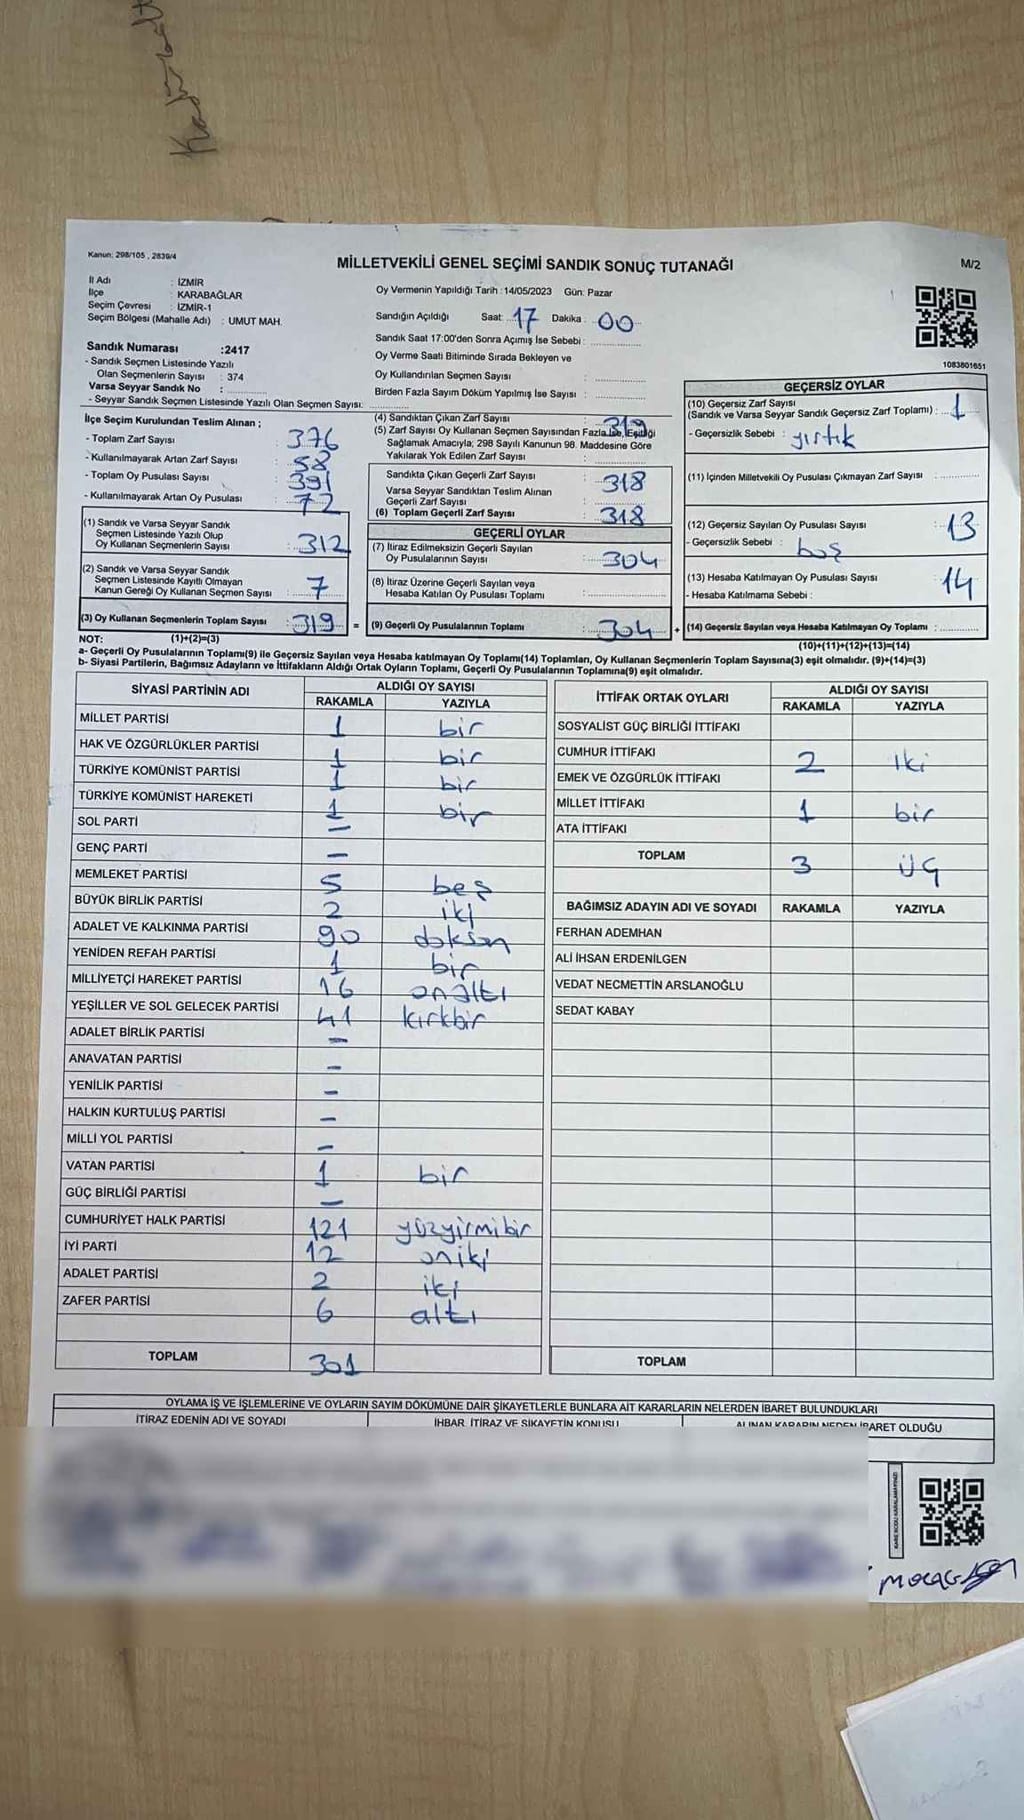 Kanun: 298/105 , 2839/4
MİLLETVEKİLİ GENEL SEÇİMİ SANDIK SONUÇ TUTANAĞI
M/2
İl Adı : İZMİR
İlçe : KARABAĞLAR
Seçim Çevresi : İZMİR-1
Seçim Bölgesi (Mahalle Adı) : UMUT MAH.
Oy Vermenin Yapıldığı Tarih : 14/05/2023 Gün: Pazar
Sandığın Açıldığı Saat: 17 Dakika : 00
Sandık Saat 17:00'den Sonra Açımış İse Sebebi :
Oy Verme Saati Bitiminde Sırada Bekleyen ve
Oy Kullandırılan Seçmen Sayısı :
Birden Fazla Sayım Döküm Yapılmış İse Sayısı :
1083801651
Sandık Numarası :2417
- Sandık Seçmen Listesinde Yazılı
Olan Seçmenlerin Sayısı : 374
Varsa Seyyar Sandık No :
- Seyyar Sandık Seçmen Listesinde Yazılı Olan Seçmen Sayısı:
İlçe Seçim Kurulundan Teslim Alınan ;
- Toplam Zarf Sayısı : 376
- Kullanılmayarak Artan Zarf Sayısı : 58
- Toplam Oy Pusulası Sayısı : 391
- Kullanılmayarak Artan Oy Pusulası : 72
(1) Sandık ve Varsa Seyyar Sandık
Seçmen Listesinde Yazılı Olup
Oy Kullanan Seçmenlerin Sayısı : 312
(2) Sandık ve Varsa Seyyar Sandık
Seçmen Listesinde Kayıtlı Olmayan
Kanun Gereği Oy Kullanan Seçmen Sayısı : 7
(3) Oy Kullanan Seçmenlerin Toplam Sayısı : 319 =
(4) Sandıktan Çıkan Zarf Sayısı : 319
(5) Zarf Sayısı Oy Kullanan Seçmen Sayısından Fazla İse, Eşitliği
Sağlamak Amacıyla; 298 Sayılı Kanunun 98. Maddesine Göre
Yakılarak Yok Edilen Zarf Sayısı :
Sandıkta Çıkan Geçerli Zarf Sayısı : 318
Varsa Seyyar Sandıktan Teslim Alınan
Geçerli Zarf Sayısı :
(6) Toplam Geçerli Zarf Sayısı : 318
GEÇERLİ OYLAR
(7) İtiraz Edilmeksizin Geçerli Sayılan
Oy Pusulalarının Sayısı : 304
(8) İtiraz Üzerine Geçerli Sayılan veya
Hesaba Katılan Oy Pusulası Toplamı :
(9) Geçerli Oy Pusulalarının Toplamı : 304 +
GEÇERSİZ OYLAR
(10) Geçersiz Zarf Sayısı
(Sandık ve Varsa Seyyar Sandık Geçersiz Zarf Toplamı) : 1
- Geçersizlik Sebebi : yırtık
(11) İçinden Milletvekili Oy Pusulası Çıkmayan Zarf Sayısı :
(12) Geçersiz Sayılan Oy Pusulası Sayısı : 13
- Geçersizlik Sebebi : boş
(13) Hesaba Katılmayan Oy Pusulası Sayısı : 14
- Hesaba Katılmama Sebebi :
(14) Geçersiz Sayılan veya Hesaba Katılmayan Oy Toplamı :
NOT: (1)+(2)=(3)
(10)+(11)+(12)+(13)=(14)
a- Geçerli Oy Pusulalarının Toplamı(9) ile Geçersiz Sayılan veya Hesaba katılmayan Oy Toplamı(14) Toplamları, Oy Kullanan Seçmenlerin Toplam Sayısına(3) eşit olmalıdır. (9)+(14)=(3)
b- Siyasi Partilerin, Bağımsız Adayların ve İttifakların Aldığı Ortak Oyların Toplamı, Geçerli Oy Pusulalarının Toplamına(9) eşit olmalıdır.
SİYASİ PARTİNİN ADI ALDIĞI OY SAYISI
RAKAMLA YAZIYLA
MİLLET PARTİSİ 1 bir
HAK VE ÖZGÜRLÜKLER PARTİSİ 1 bir
TÜRKİYE KOMÜNİST PARTİSİ 1 bir
TÜRKİYE KOMÜNİST HAREKETİ 1 bir
SOL PARTİ –
GENÇ PARTİ –
MEMLEKET PARTİSİ 5 beş
BÜYÜK BİRLİK PARTİSİ 2 iki
ADALET VE KALKINMA PARTİSİ 90 doksan
YENİDEN REFAH PARTİSİ 1 bir
MİLLİYETÇİ HAREKET PARTİSİ 16 onaltı
YEŞİLLER VE SOL GELECEK PARTİSİ 41 kırkbir
ADALET BİRLİK PARTİSİ –
ANAVATAN PARTİSİ –
YENİLİK PARTİSİ –
HALKIN KURTULUŞ PARTİSİ –
MİLLİ YOL PARTİSİ –
VATAN PARTİSİ 1 bir
GÜÇ BİRLİĞİ PARTİSİ –
CUMHURİYET HALK PARTİSİ 121 yüzyirmibir
İYİ PARTİ 12 oniki
ADALET PARTİSİ 2 iki
ZAFER PARTİSİ 6 altı
TOPLAM 301
İTTİFAK ORTAK OYLARI ALDIĞI OY SAYISI
RAKAMLA YAZIYLA
SOSYALİST GÜÇ BİRLİĞİ İTTİFAKI
CUMHUR İTTİFAKI 2 iki
EMEK VE ÖZGÜRLÜK İTTİFAKI
MİLLET İTTİFAKI 1 bir
ATA İTTİFAKI
TOPLAM 3 üç
BAĞIMSIZ ADAYIN ADI VE SOYADI RAKAMLA YAZIYLA
FERHAN ADEMHAN
ALİ İHSAN ERDENİLGEN
VEDAT NECMETTİN ARSLANOĞLU
SEDAT KABAY
TOPLAM
OYLAMA İŞ VE İŞLEMLERİNE VE OYLARIN SAYIM DÖKÜMÜNE DAİR ŞİKAYETLERLE BUNLARA AİT KARARLARIN NELERDEN İBARET BULUNDUKLARI
İTİRAZ EDENİN ADI VE SOYADI İHBAR, İTİRAZ VE ŞİKAYETİN KONUSU ALINAN KARARIN NEDEN İBARET OLDUĞU